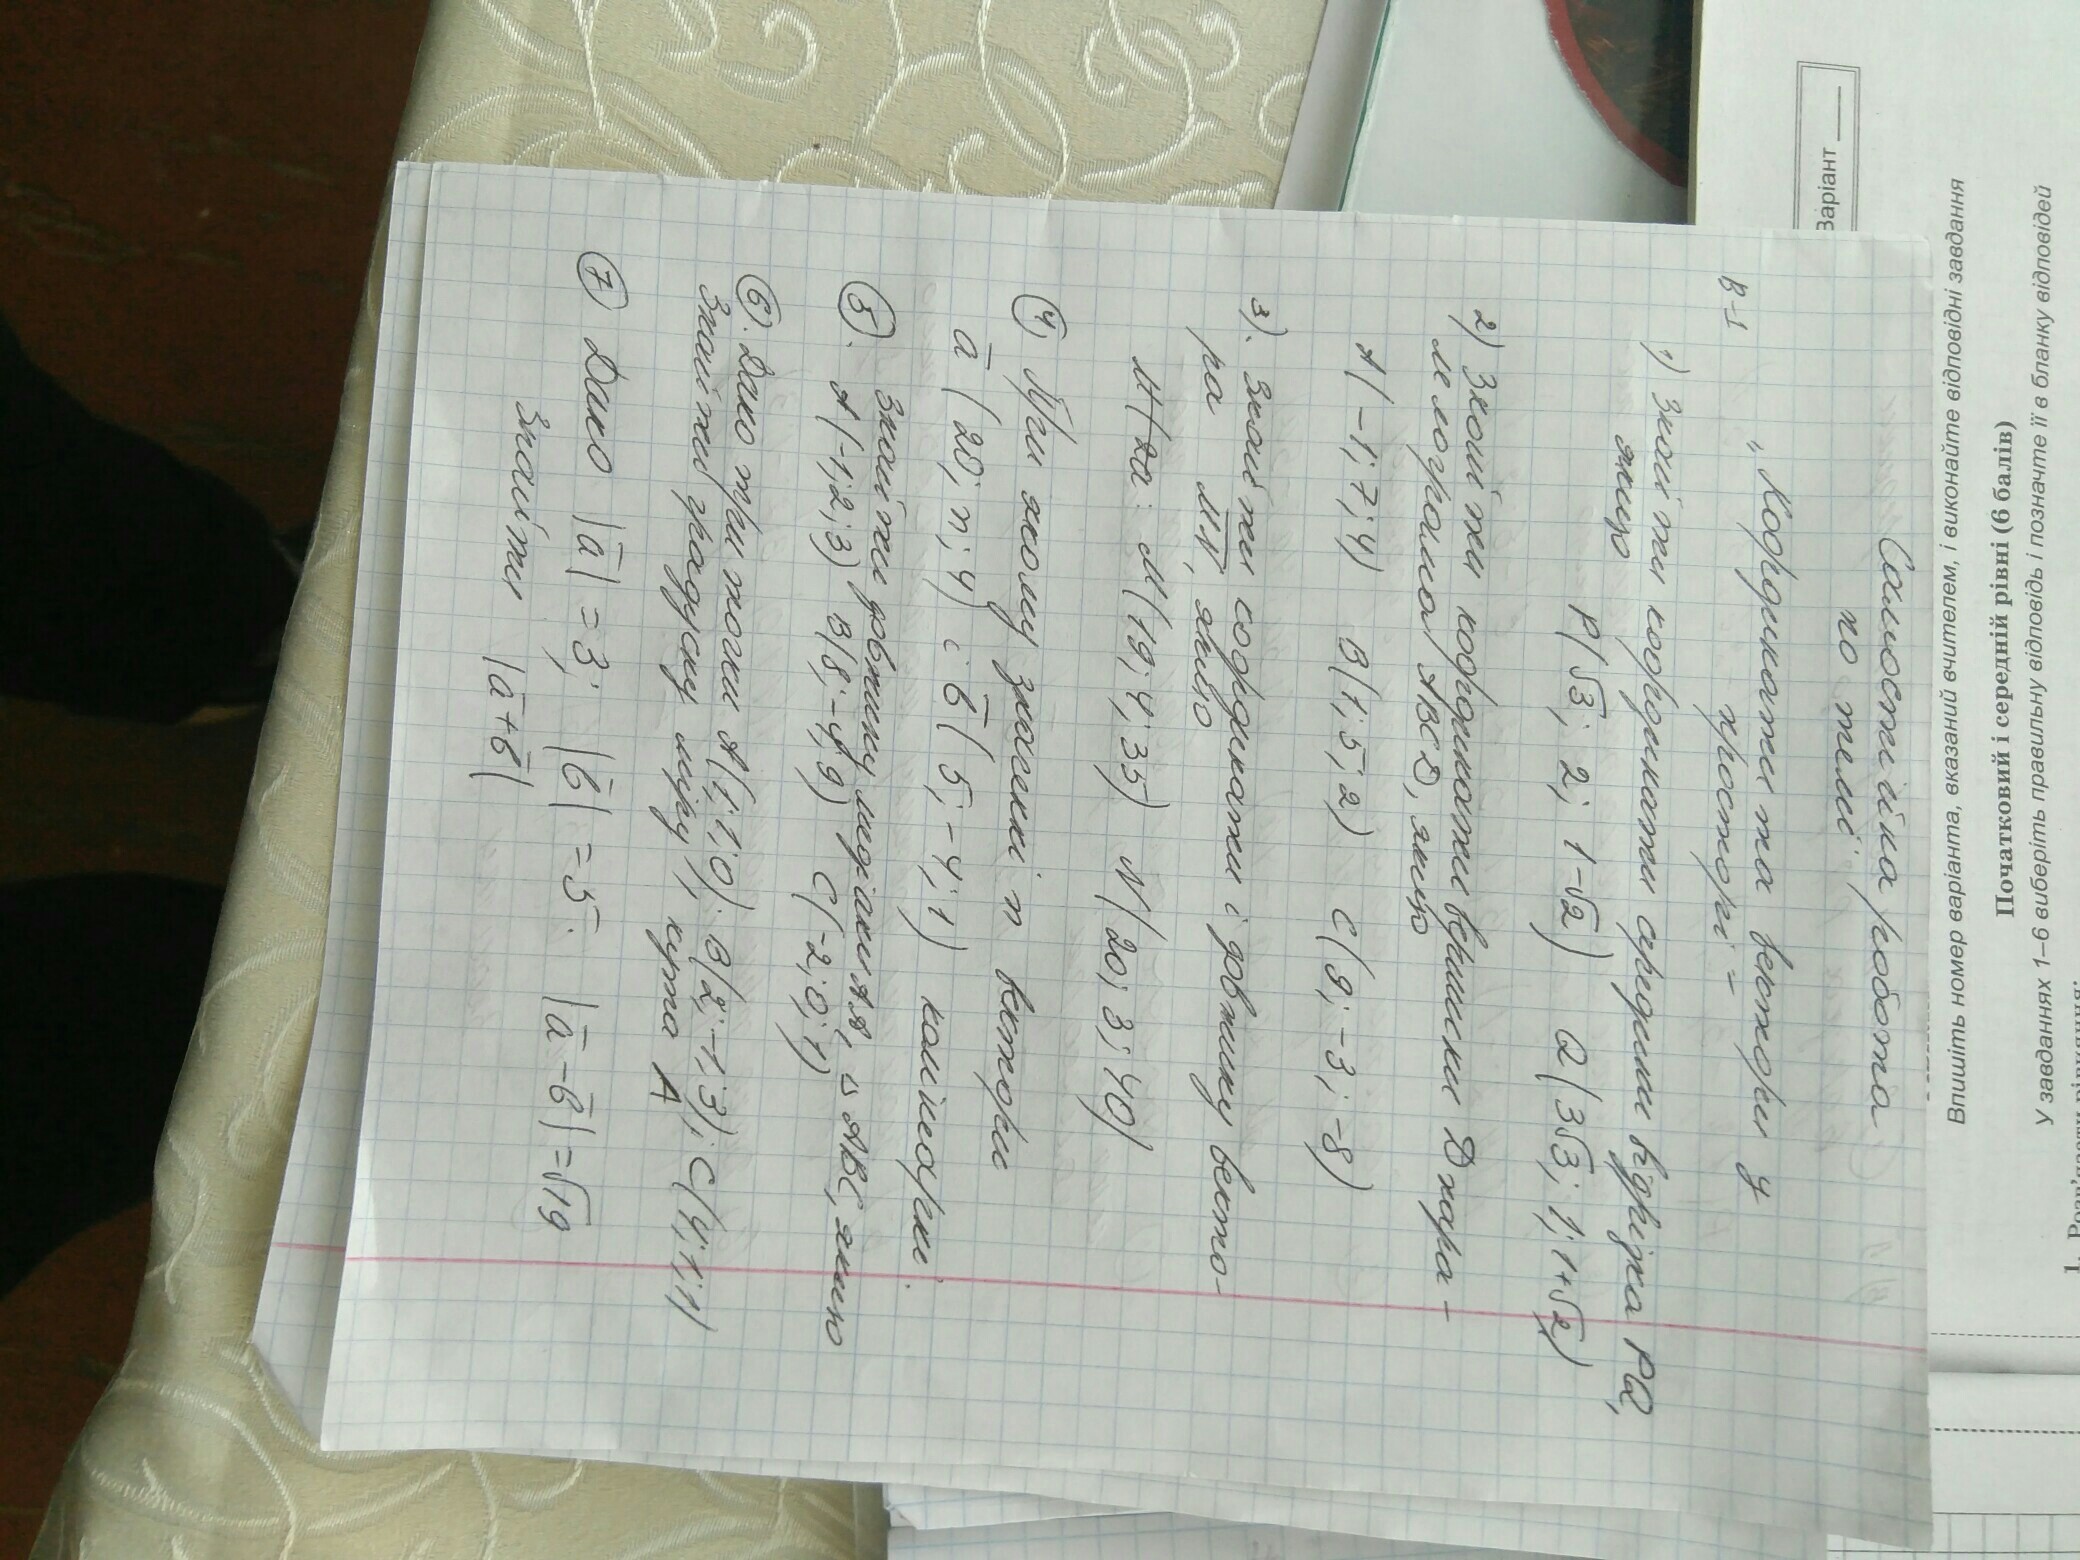 Самостійна робота
по темі:
„Координати та вектори у
просторі –
В-І
1) Знайти координати середини відрізка PQ,
якщо
P(√3; 2; 1-√2) Q(3√3; 1; 1+√2)
2) Знайти координати вершини D пара-
лелограма ABCD, якщо
A(-1; 7; 4) B(1; 5; 2) C(9; -3; -8)
3). Знайти координати і довжину векто-
ра MN, якщо
M(19; 4; 35) N(20; 3; 40)
4. При якому значенні n вектори
a(20; n; 4) і b(5; -4; 1) колінеарні.
5. Знайти довжину медіани AA₁ △ ABC, якщо
A(-1; 2; 3) B(8; -4; 9) C(-2; 0; 1)
6. Дано три точки A(1; 1; 0). B(2; -1; 3); C(4; 1; 1)
Знайти градусну міру кута A
7 Дано |a| = 3; |b| = 5. |a - b| = √19
Знайти |a + b|
Варіант
Впишіть номер варіанта, вказаний вчителем, і виконайте відповідні завдання
Початковий і середній рівні (6 балів)
У завданнях 1–6 виберіть правильну відповідь і позначте її в бланку відповідей